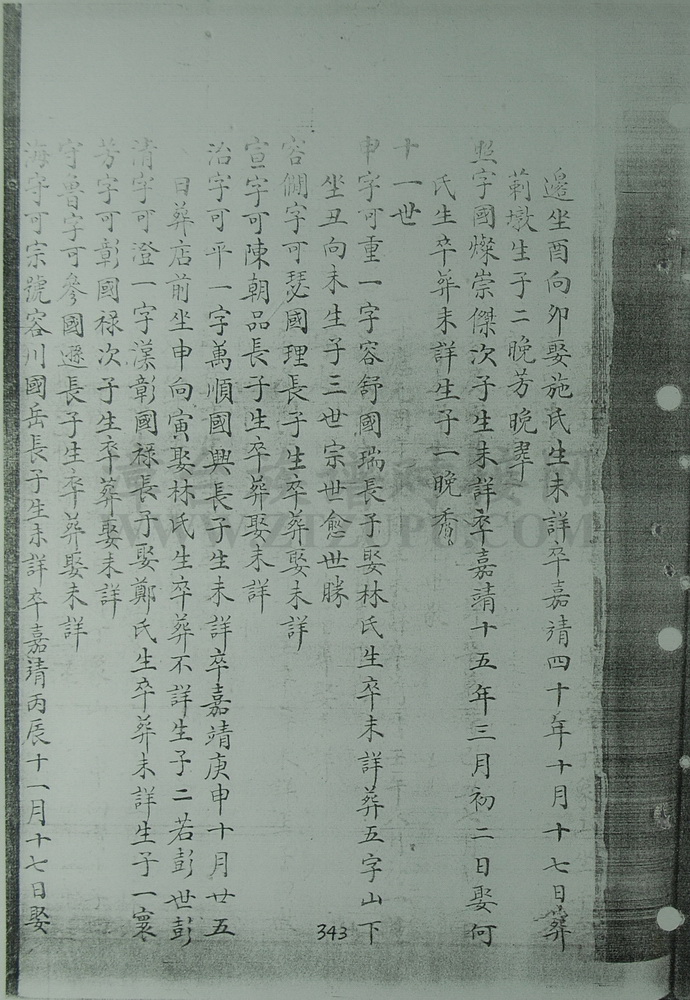 邊坐酉向卯娶施氏生未詳卒嘉靖四十年十月十七日葬
莿墩生子二晚芳晚翠
照字國燦崇傑次子生未詳卒嘉靖十五年三月初二日娶何
氏生卒葬未詳生子一晚香
十一世
申字可重一字容舒國瑞長子娶林氏生卒未詳葬五字山下
坐丑向未生子三世宗世愈世勝
容僩字可瑟國理長子生卒葬娶未詳
宣字可陳朝品長子生卒葬娶未詳
治字可平一字萬順國興長子生未詳卒嘉靖庚申十月廿五
日葬店前坐申向寅娶林氏生卒葬不詳生子二若彭世彭
清字可澄一字漢彰國祿長子娶鄭氏生卒葬未詳生子一寰
芳字可彰國祿次子生卒葬娶未詳
守魯字可參國遜長子生卒葬娶未詳
海字可宗號容川國岳長子生未詳卒嘉靖丙辰十一月十七日娶
343
WWW.ZTZUPU.COM